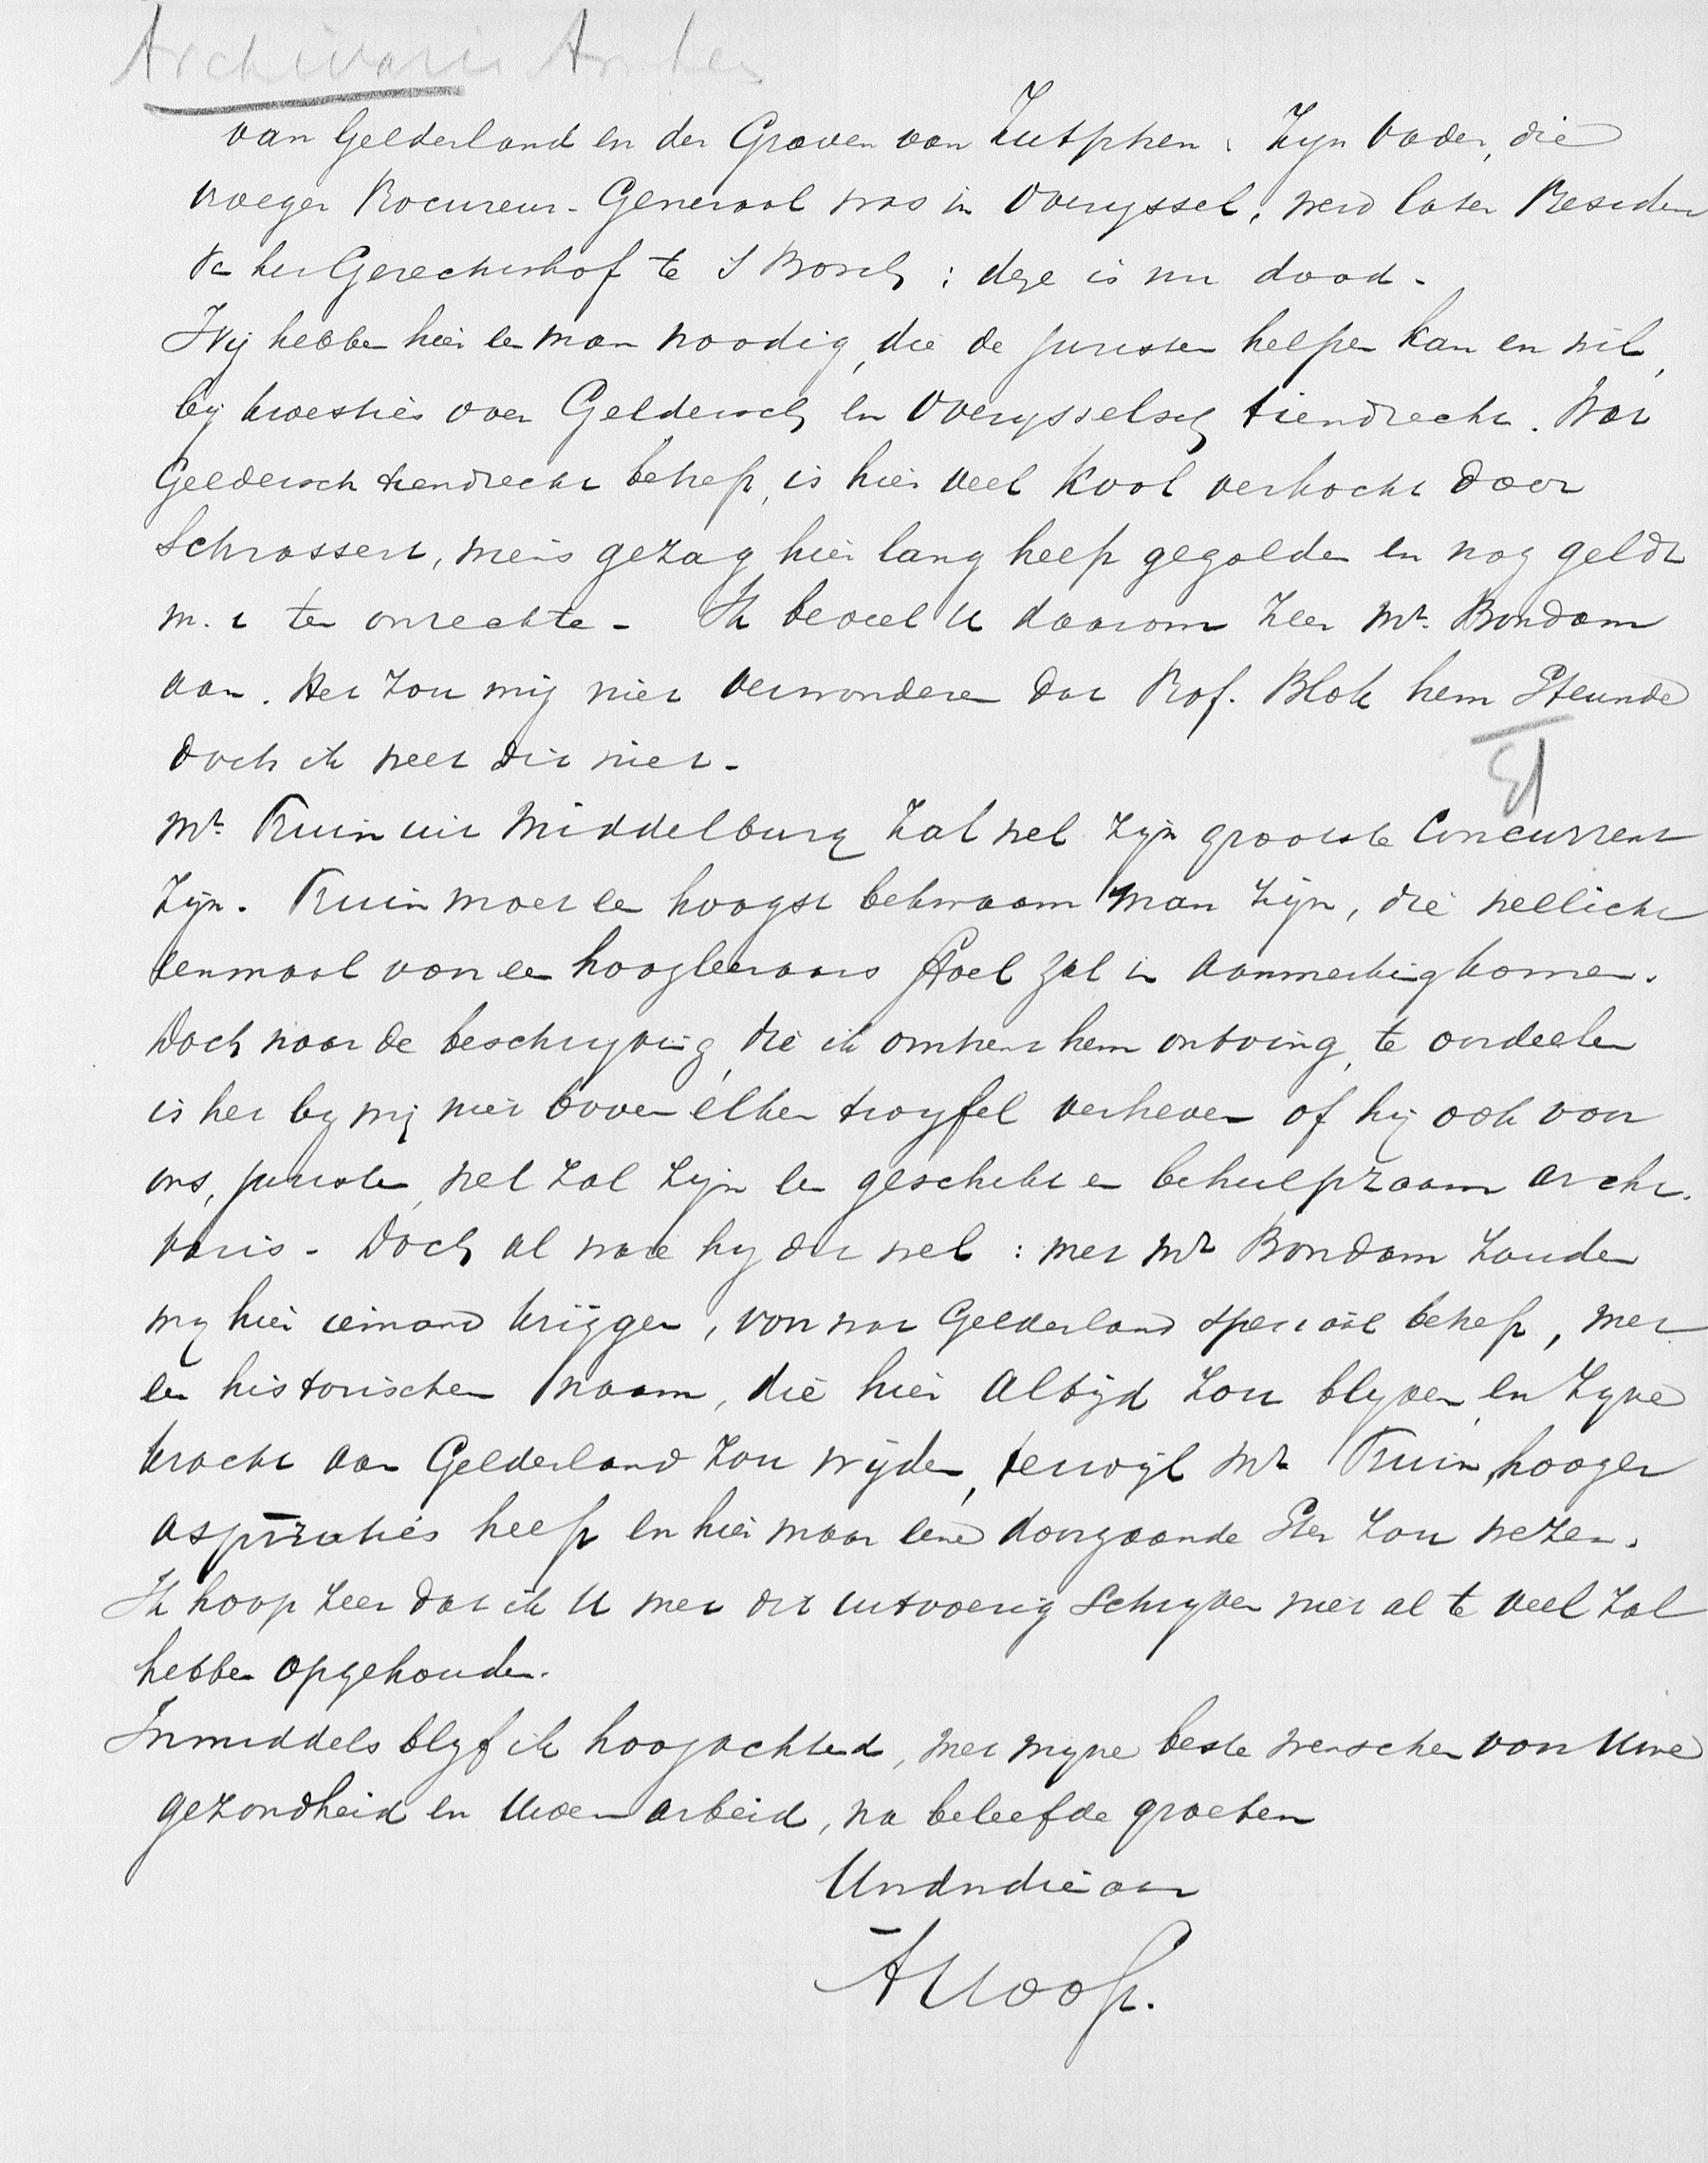 Archivaris Arnhem
van Gelderland en der Graven van Zutphen. Zyn Vader, die
vroeger Procureur-Generaal was in Overyssel, werd later President
v/h het Gerechtshof te 's Bosch; deze is nu dood.
Wij hebben hier een man noodig, die de juristen helpen kan en wil,
bij kwesties over Geldersch en Overysselsch tiendrecht. Wat
Geldersch tiendrecht betreft, is hier veel kool verkocht door
Schrassert, wiens gezag hier lang heeft gegolden en nog geldt
m.i. ten onrechte. Ik beveel U daarom zeer Mr. Bondam
aan. Het zou mij niet verwonderen dat Prof. Blok hem steunde
doch ik weet dit niet.
Mr. Fruin uit Middelburg zal wel zijn grootste concurrent
zijn. Fruin moet een hoogst bekwaam man zijn, die wellicht
eenmaal voor een hoogleeraars stoel zal in aanmerking komen.
Doch naar de beschryving, die ik omtrent hem ontving, te oordeelen
is het by mij niet boven elken twyfel verheven of hij ook voor
ons, juristen, wel zal zijn een geschikt en behulpzaam archi-
varis. Doch al ware hy dit wel: met Mr Bondam zouden
wy hier iemand krijgen, van wat Gelderland speciaal betreft, met
een historischen naam, die hier altijd zou blyven en zyne
kracht aan Gelderland zou wijden, terwijl Mr. Fruin, hooger
aspiraties heeft en hier maar eene doorgaande ster zou wezen.
Ik hoop zeer dat ik U met dit uitvoerig schryven niet al te veel zal
hebben opgehouden.
Inmiddels blyf ik hoogachtend, met myne beste wenschen voor Uwe
gezondheid en Uwen arbeid, na beleefde groeten
Uwdwdienaar